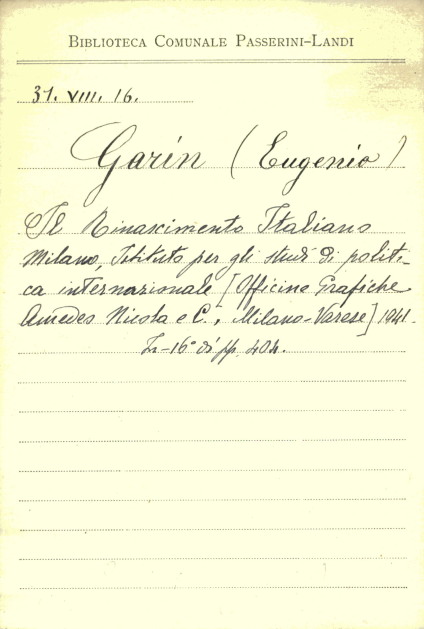 BIBLIOTECA COMUNALE PASSERINI-LANDI
31. VIII. 16.
Garin (Eugenio)
Il Rinascimento Italiano
Milano, Istituto per gli studi di politi-
ca internazionale [Officine Grafiche
Amedeo Nicola e C.i, Milano-Varese] 1941.
In-16° di pp. 404.